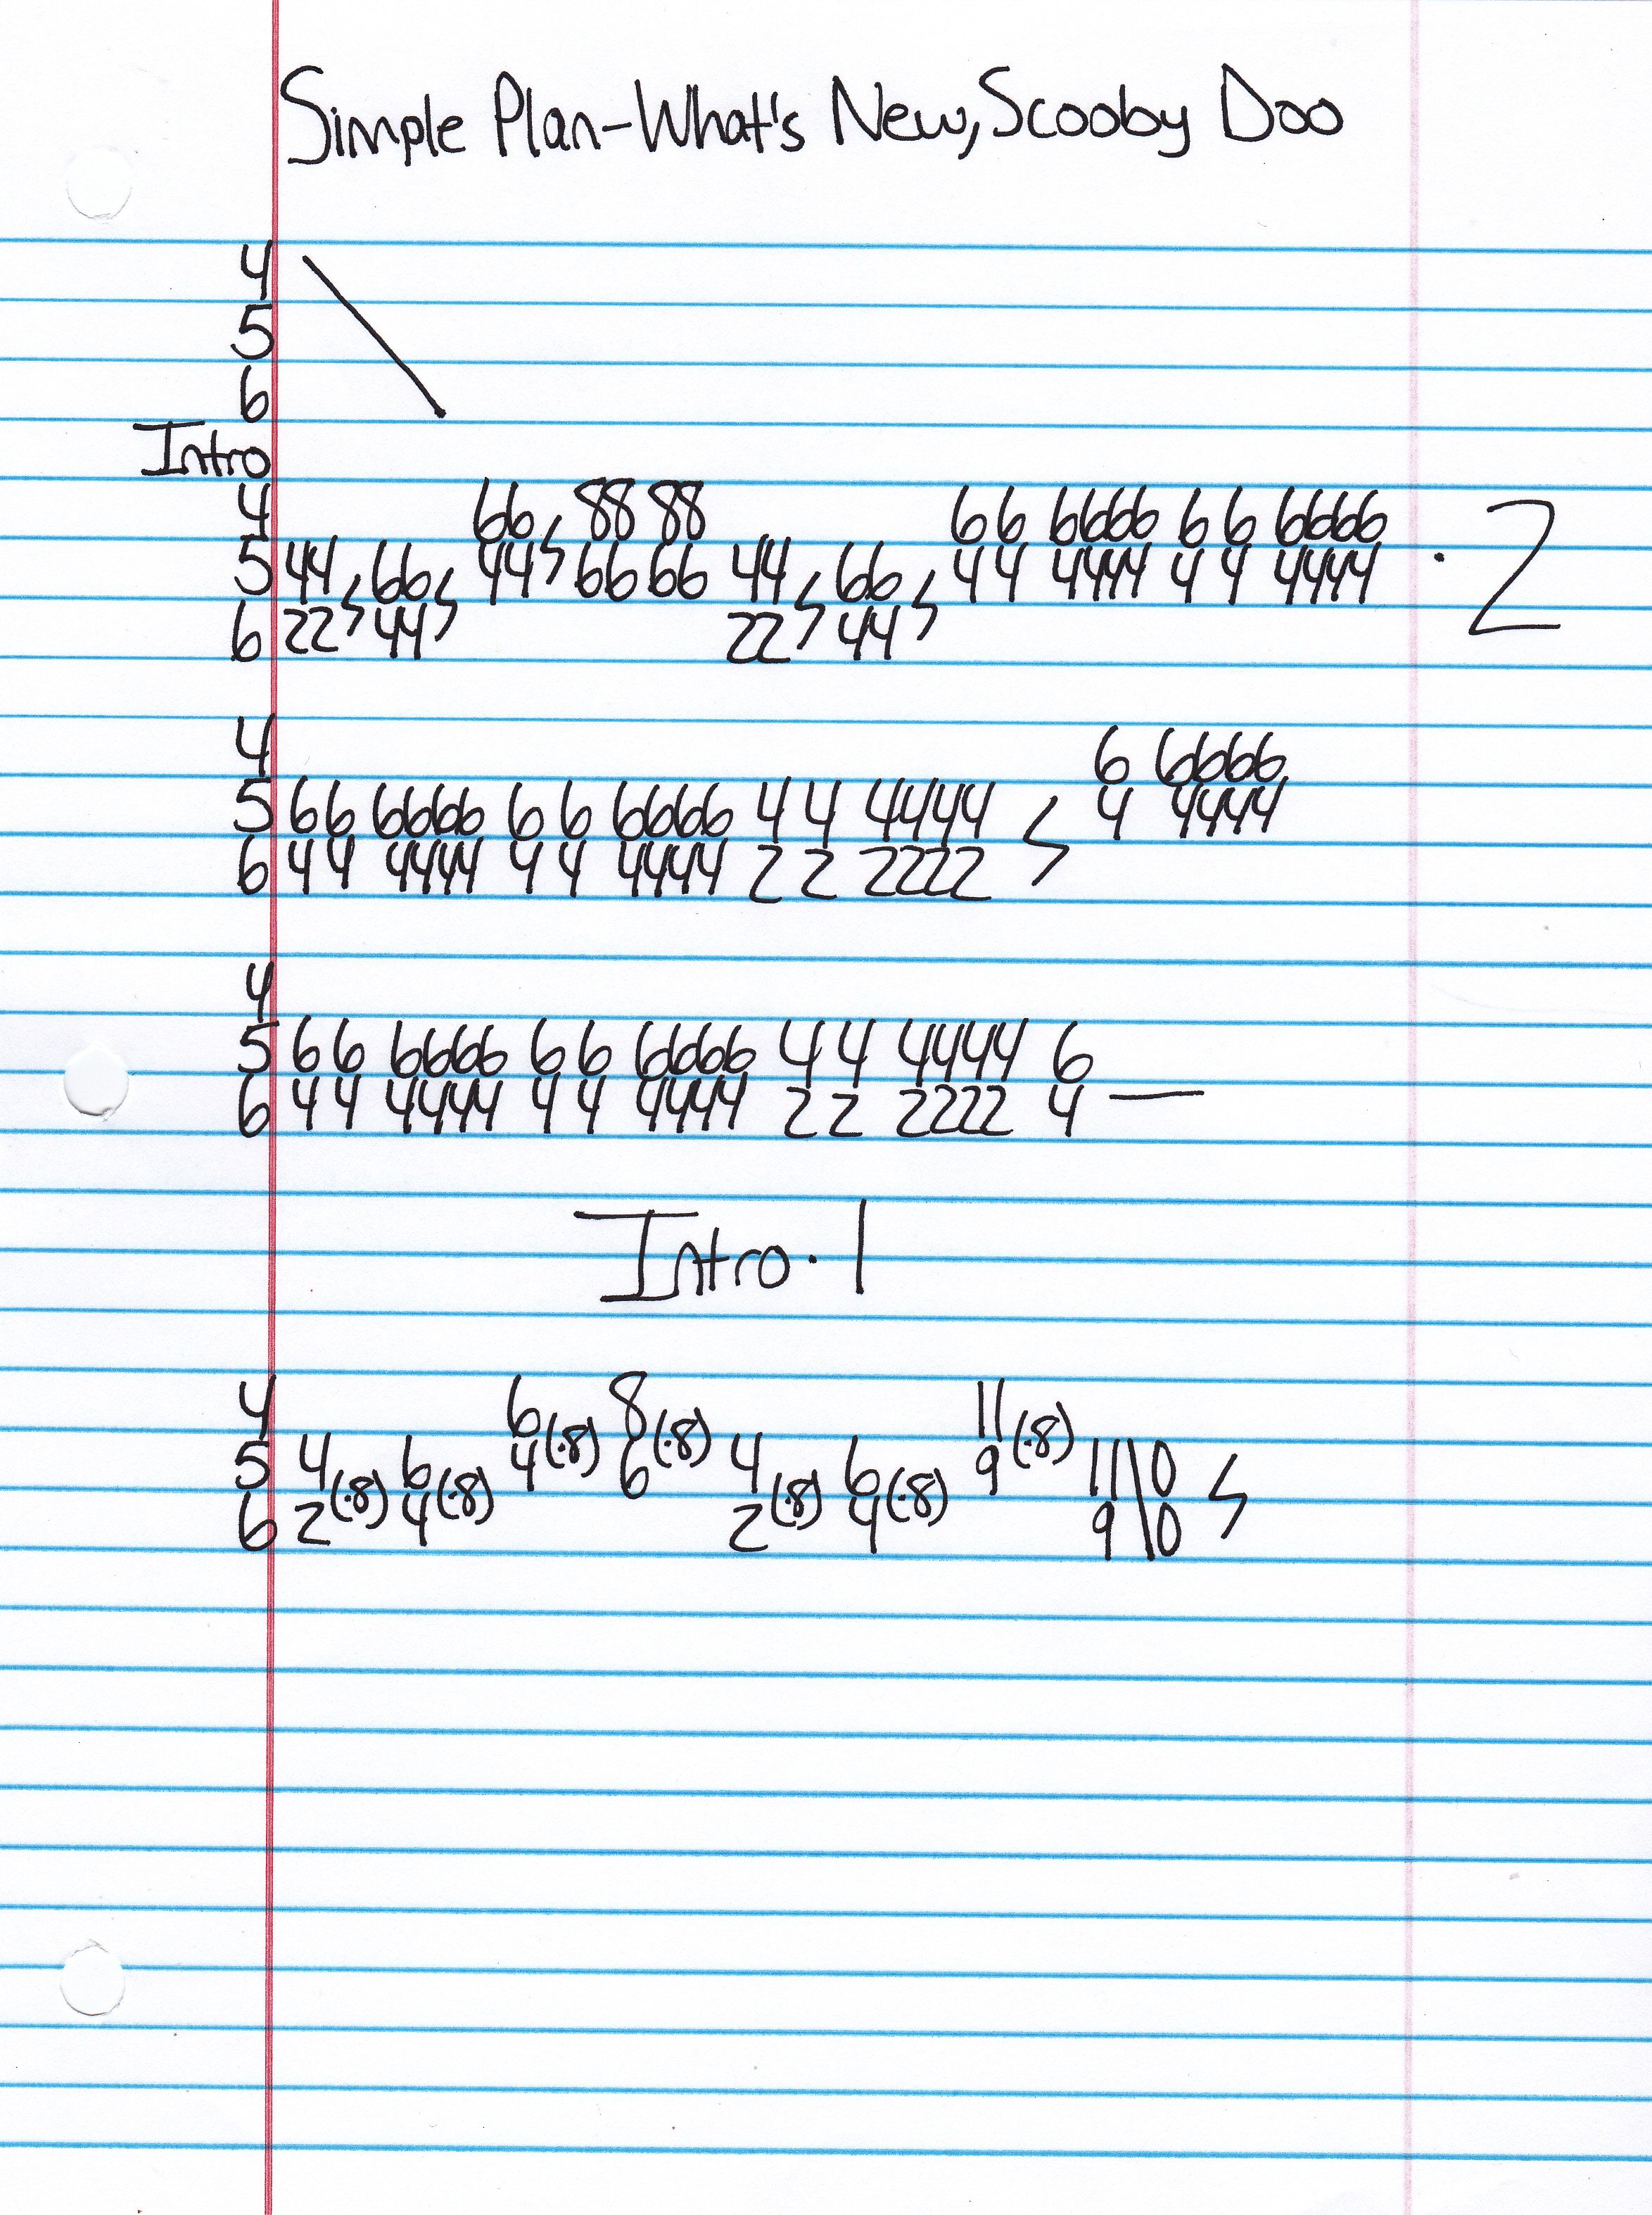 Simple Plan-What's New, Scooby Doo
4
5
6
Intro
4 66 88 88 6 6 6666 6 6 6666
5 44 66 44 66 66 44 66 4 4 4444 4 4 4444 · 2
6 22 44 22 44
4 6 6666
5 6 6 6666 6 6 6666 4 4 4444 4 4444
6 4 4 4444 4 4 4444 2 2 2222
4
5 6 6 6666 6 6 6666 4 4 4444 6
6 4 4 4444 4 4 4444 2 2 2222 4 —
Intro · 1
4 6 8 11
5 4 6 4(·8) 6(·8) 4 6 9(·8) 11\0
6 2(·8) 4(·8) 2(·8) 4(·8) 9\0